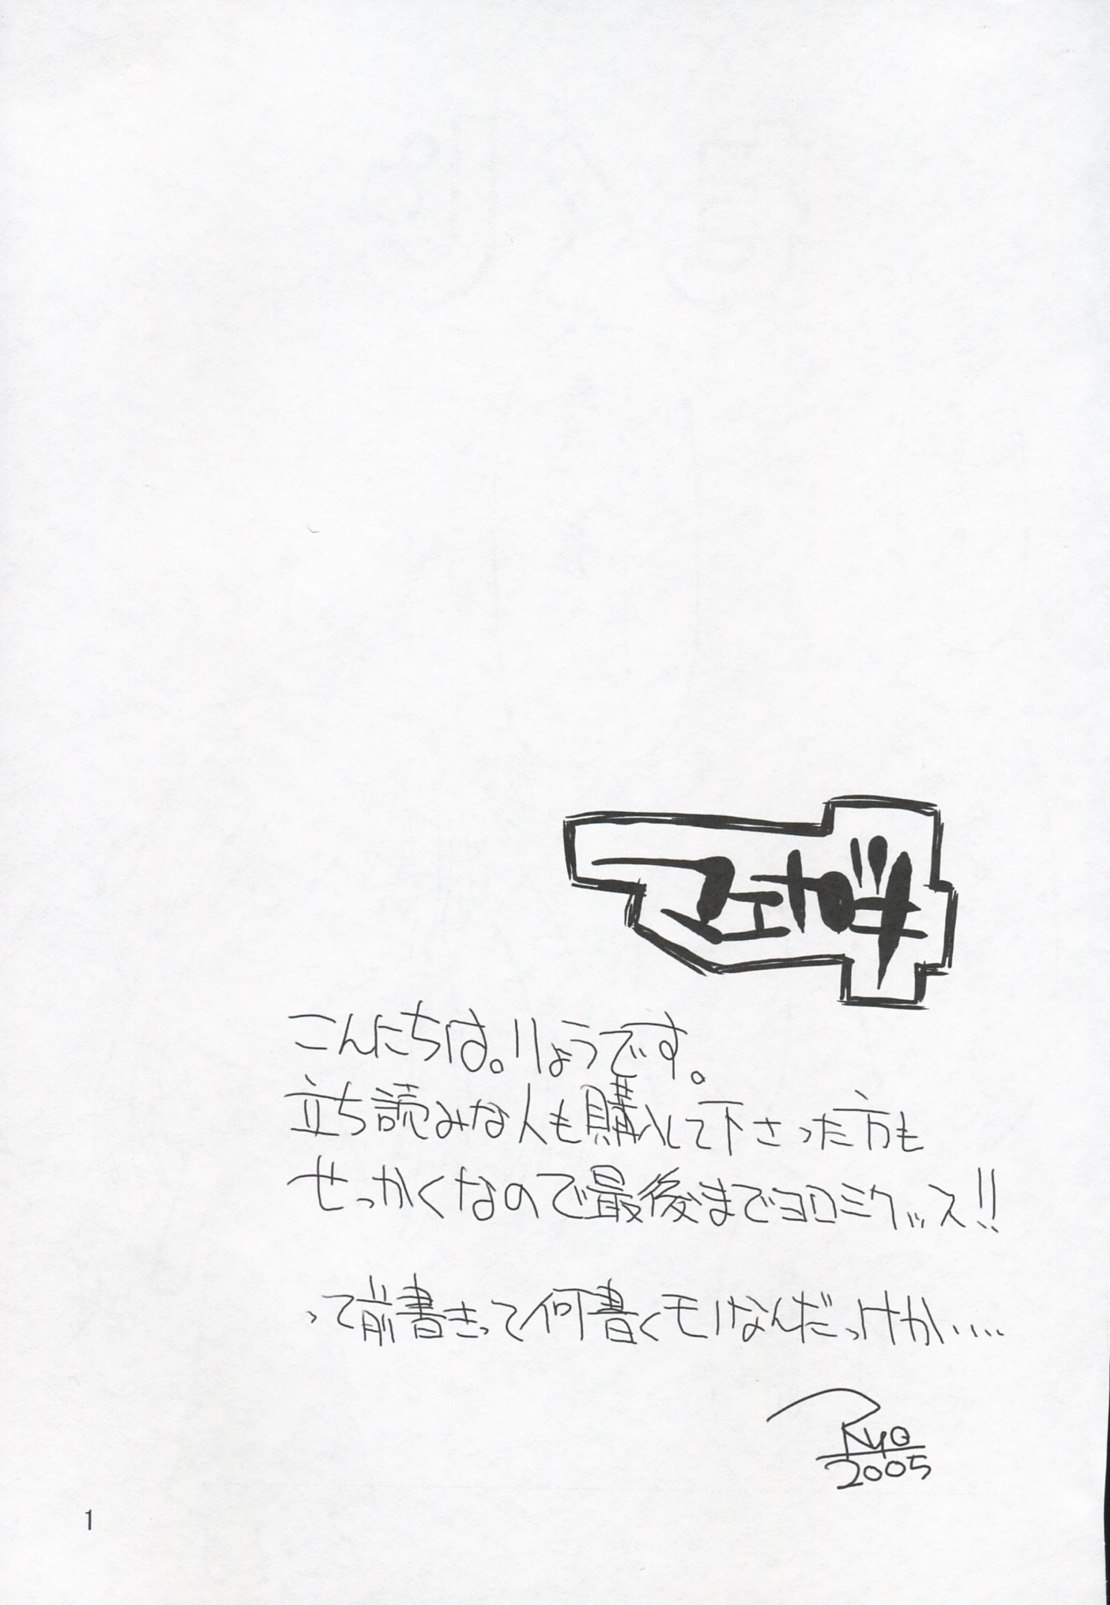 マエガキ
こんにちは。りょうです。
立ち読みな人も購入して下さった方も
せっかくなので最後までヨロシクッス!!
って前書きって何書くモノなんだっけか・・・・
Ryo
2005
1